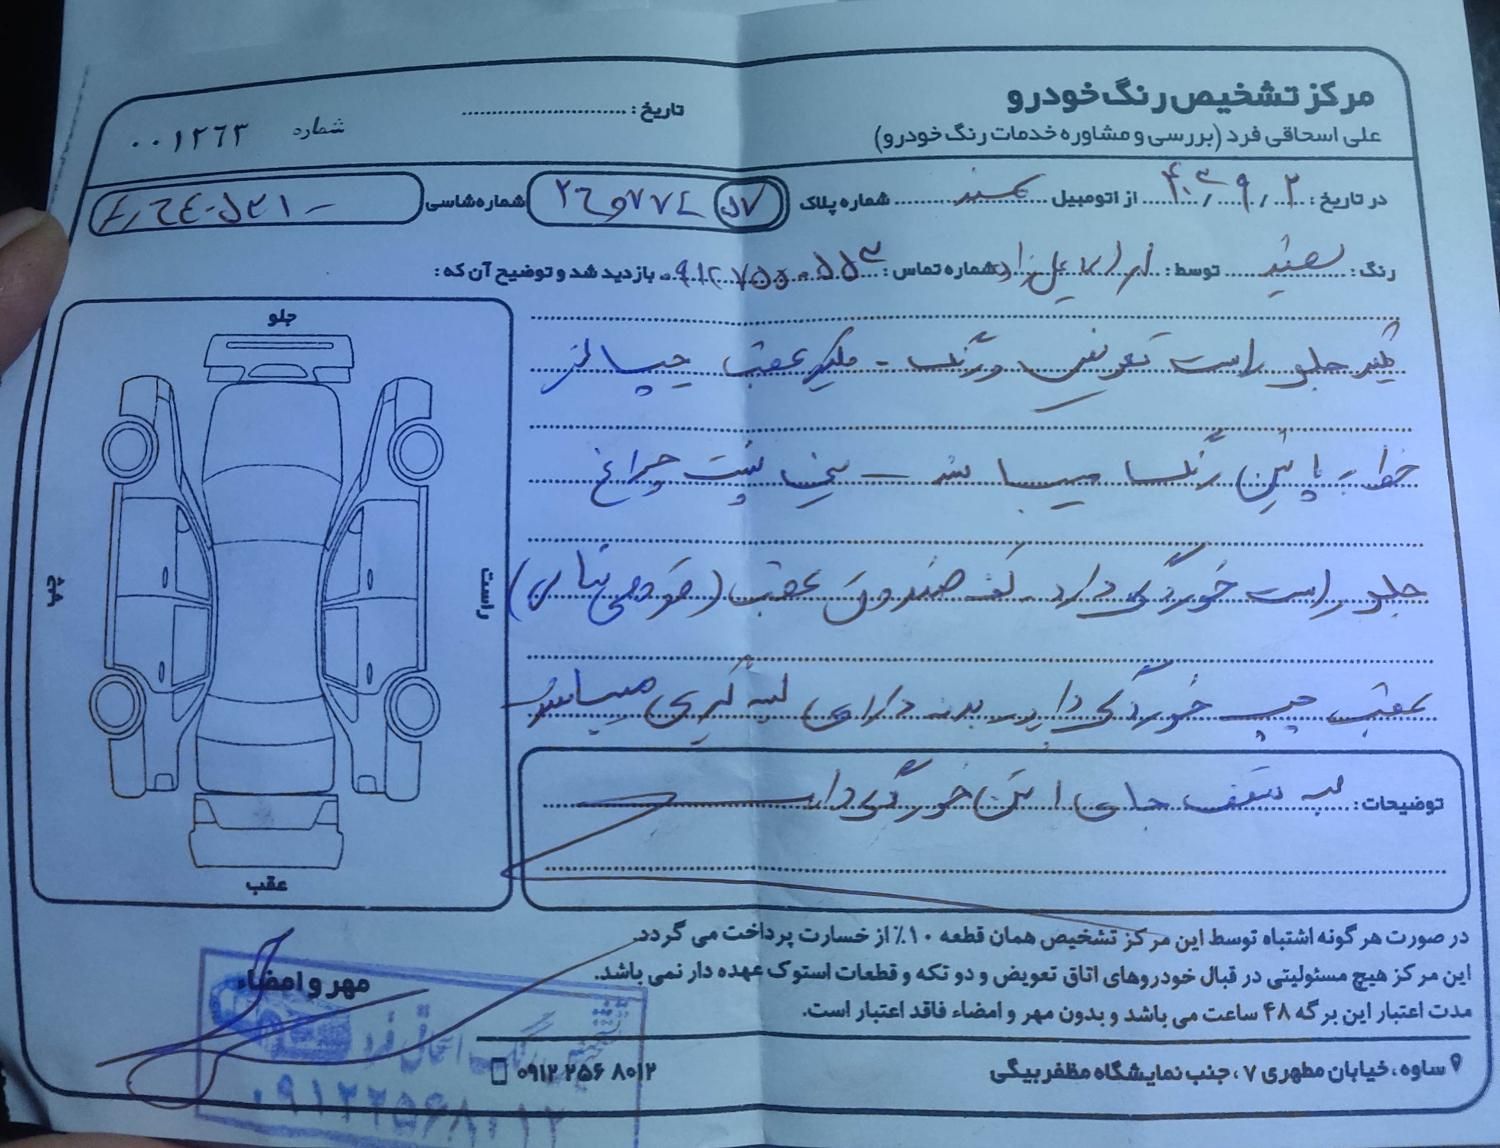 مرکز تشخیص رنگ خودرو
علی اسحاقی فرد (بررسی و مشاوره خدمات رنگ خودرو)
تاریخ :
شماره ۰۰۱۲۶۳
در تاریخ : ۴۰۳/۹/۲ از اتومبیل سمند شماره پلاک شماره شاسی
رنگ : سفید توسط : شماره تماس : بازدید شد و توضیح آن که :
گلگیر جلو راست تعویض و رنگ - گلگیر عقب چپ از
خط به پائین رنگ میباشد - سینی پشت چراغ
جلو راست خوردگی دارد . کف صندوق عقب
عقب چپ خوردگی دارد - بدنه دارای لیسه گیری میباشد
توضیحات : لبه سقف جای آنتن خوردگی دارد
جلو
راست
چپ
عقب
در صورت هر گونه اشتباه توسط این مرکز تشخیص همان قطعه ۱۰٪ از خسارت پرداخت می گردد.
این مرکز هیچ مسئولیتی در قبال خودروهای اتاق تعویض و دو تکه و قطعات استوک عهده دار نمی باشد.
مدت اعتبار این برگه ۴۸ ساعت می باشد و بدون مهر و امضاء فاقد اعتبار است.
مهر و امضاء
ساوه، خیابان مطهری ۷، جنب نمایشگاه مظفربیگی
۰۹۱۲ ۲۵۶ ۸۰۱۲
تشخیص رنگ اسحاقی فرد
۰۹۱۲۲۵۶۸۰۱۲